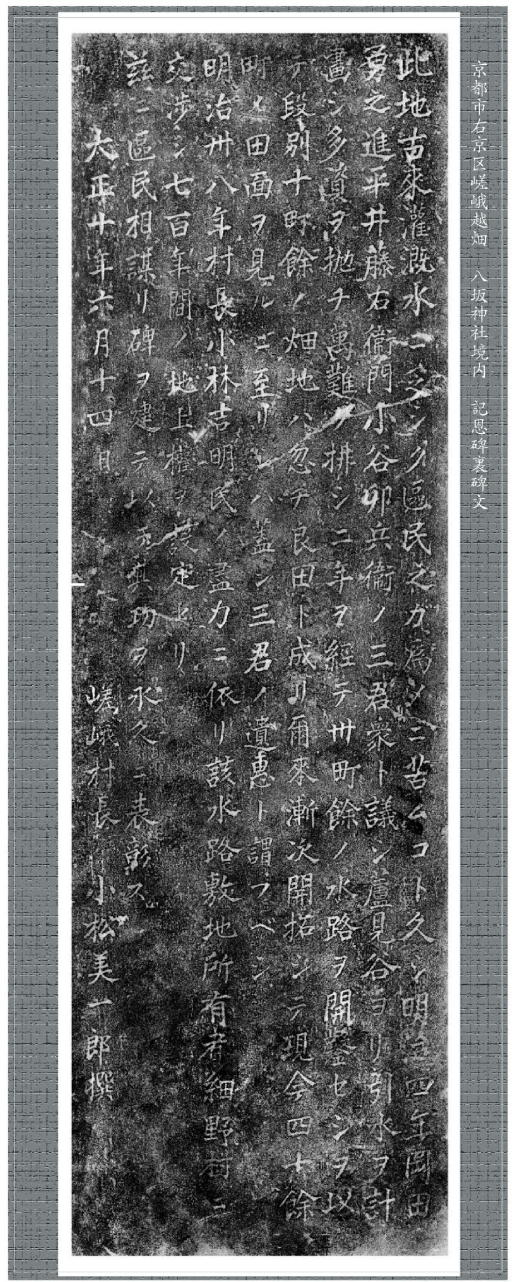 京都市右京区嵯峨越畑　八坂神社境内　記恩碑裏碑文
此地古来灌漑水ニ乏シク區民之カ為メニ苦ムコト久シ明治四年岡田
勇之進平井藤右衞門小谷卯兵衞ノ三君衆ト議シ蘆見谷ヨリ引水ヲ計
畫シ多資ヲ抛チ萬難ヲ排シ二年ヲ經テ卅町餘ノ水路ヲ開鑿セシヲ以
テ段別十町餘ノ畑地ハ忽チ良田ト成リ爾來漸次開拓シテ現今四十餘
町ノ田面ヲ見ルニ至リシハ蓋シ三君ノ遺惠ト謂フベシ
明治卅八年村長小林吉明民ノ盡力ニ依リ該水路敷地所有者細野村ニ
交渉シ七百年間ノ地上權ヲ設定セリ
茲ニ區民相謀リ碑ヲ建テ以テ其功ヲ永久ニ表彰ス
大正十年六月十四日　嵯峨村長　小松美一郎撰